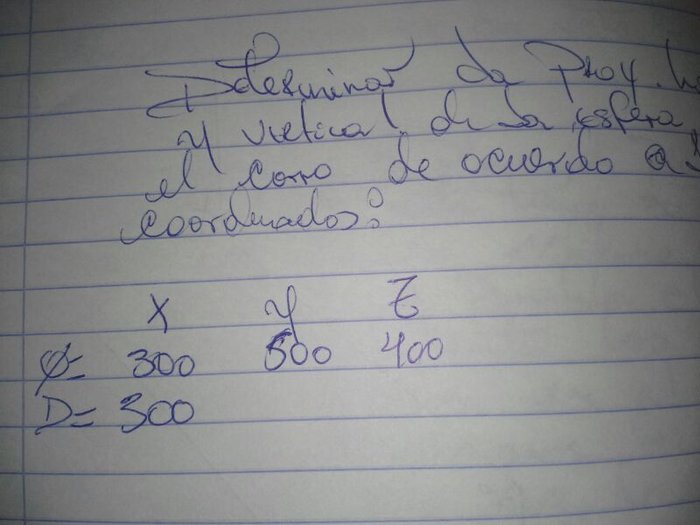 Determinar la Proy. h
y vertical de la esfera
el corro de acuerdo a
coordenadas:
X Y Z
φ= 300 500 400
D= 300